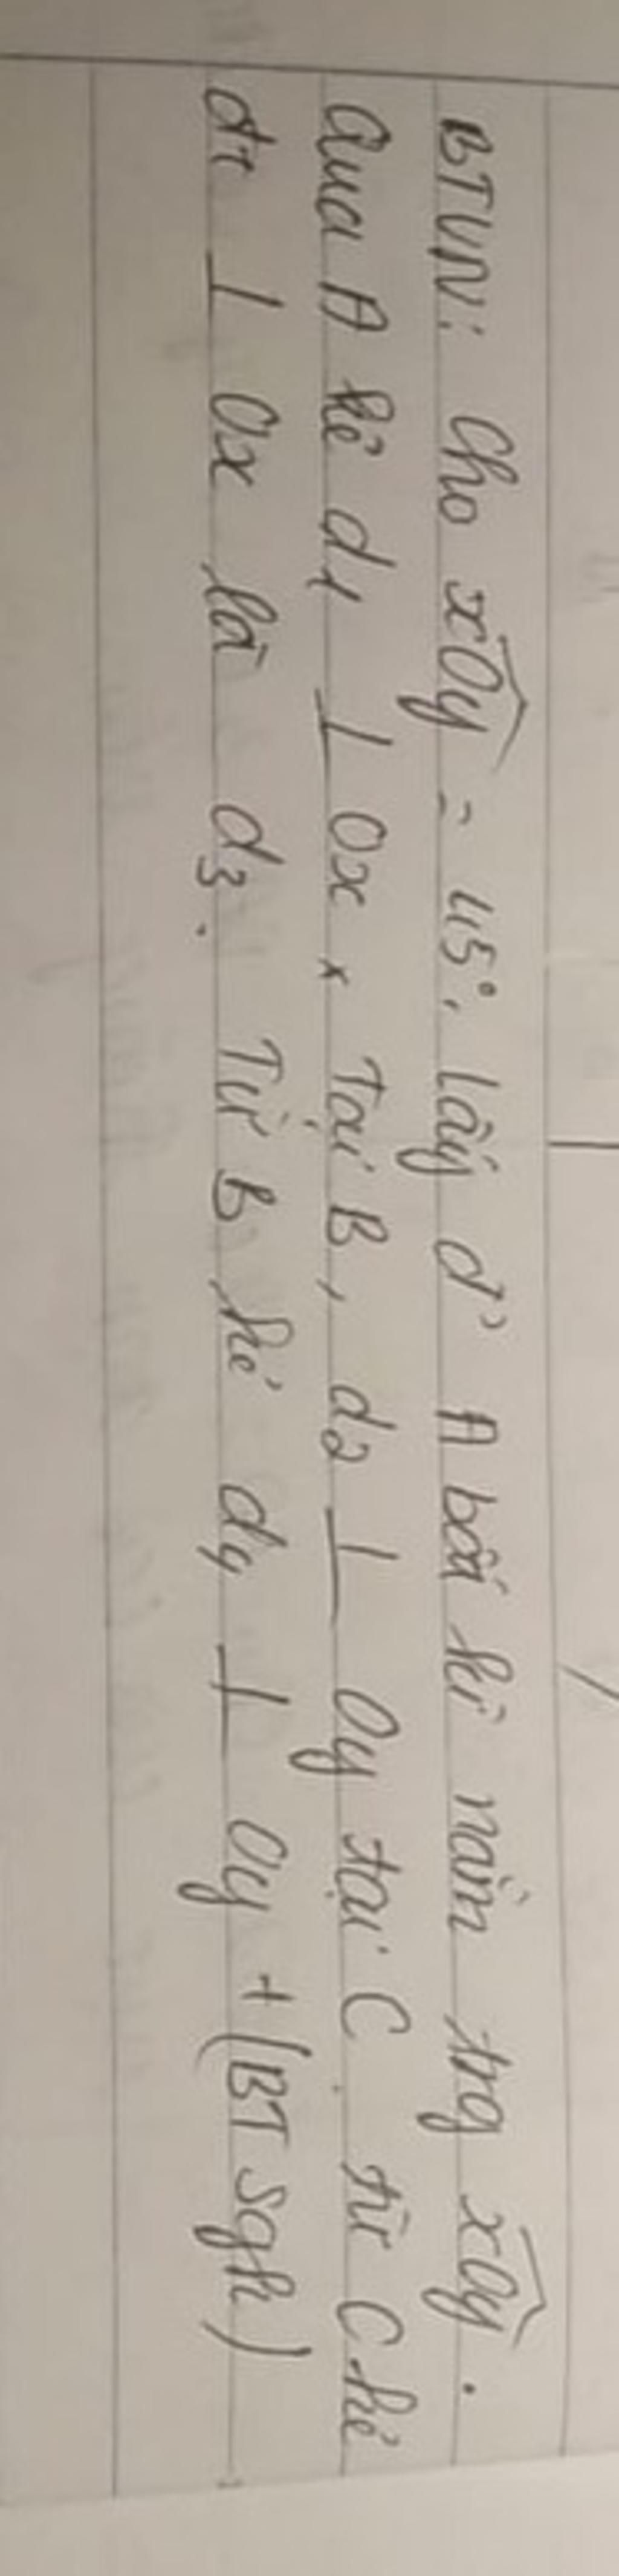 BTVN: Cho xOy = 45°, lấy đ' A bất kì nằm trg xOy.
Qua A kẻ d1 ⊥ Ox, Tại B, d2 ⊥ Oy tại C. từ C kẻ
đt ⊥ Ox là d3. Từ B kẻ d4 ⊥ Oy + (BT sgk)